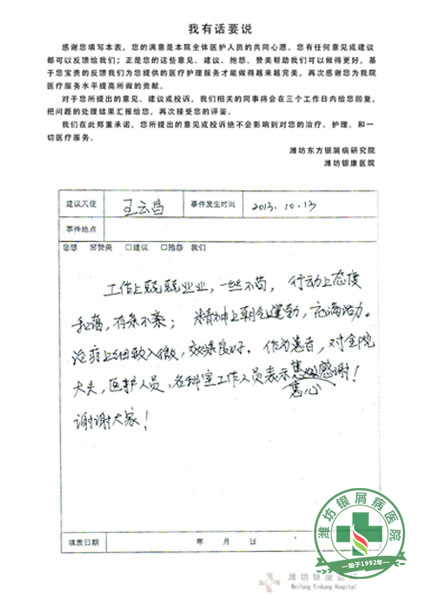 我有话要说
感谢您填写本表。您的满意是本院全体医护人员的共同心愿。您有任何意见或建议
都可以反馈给我们；正是您的这些意见、建议、抱怨、赞美帮助我们可以做得更好。
基于您宝贵的反馈我们为您提供的医疗护理服务才能做得越来越完美。再次感谢您为我院
医疗服务水平提高所做的贡献。
对于您所提出的意见、建议或投诉，我们相关的同事将会在三个工作日内给您回复，
把问题的处理结果汇报给您，再次接受您的评鉴。
我们在此郑重承诺，您所提出的意见或投诉绝不会影响到对您的治疗、护理、和一
切医疗服务。
潍坊东方银屑病研究院
潍坊银康医院
建议天使 王云昌 事件发生时间 2013.10.13
事件地点
您想 赞美 □建议 □抱怨 我们
工作上兢兢业业，一丝不苟，行动上态度
和蔼，有条不紊；精神上朝气运动，充满活力。
治疗上细致入微，效果良好。作为患者，对全院
大夫，医护人员，各科室工作人员表示 感谢！
衷心
谢谢大家！
填表日期 年 月 日
潍坊银康医
Weifang Yinkang Hospital
潍坊银屑病医院
始于1992年